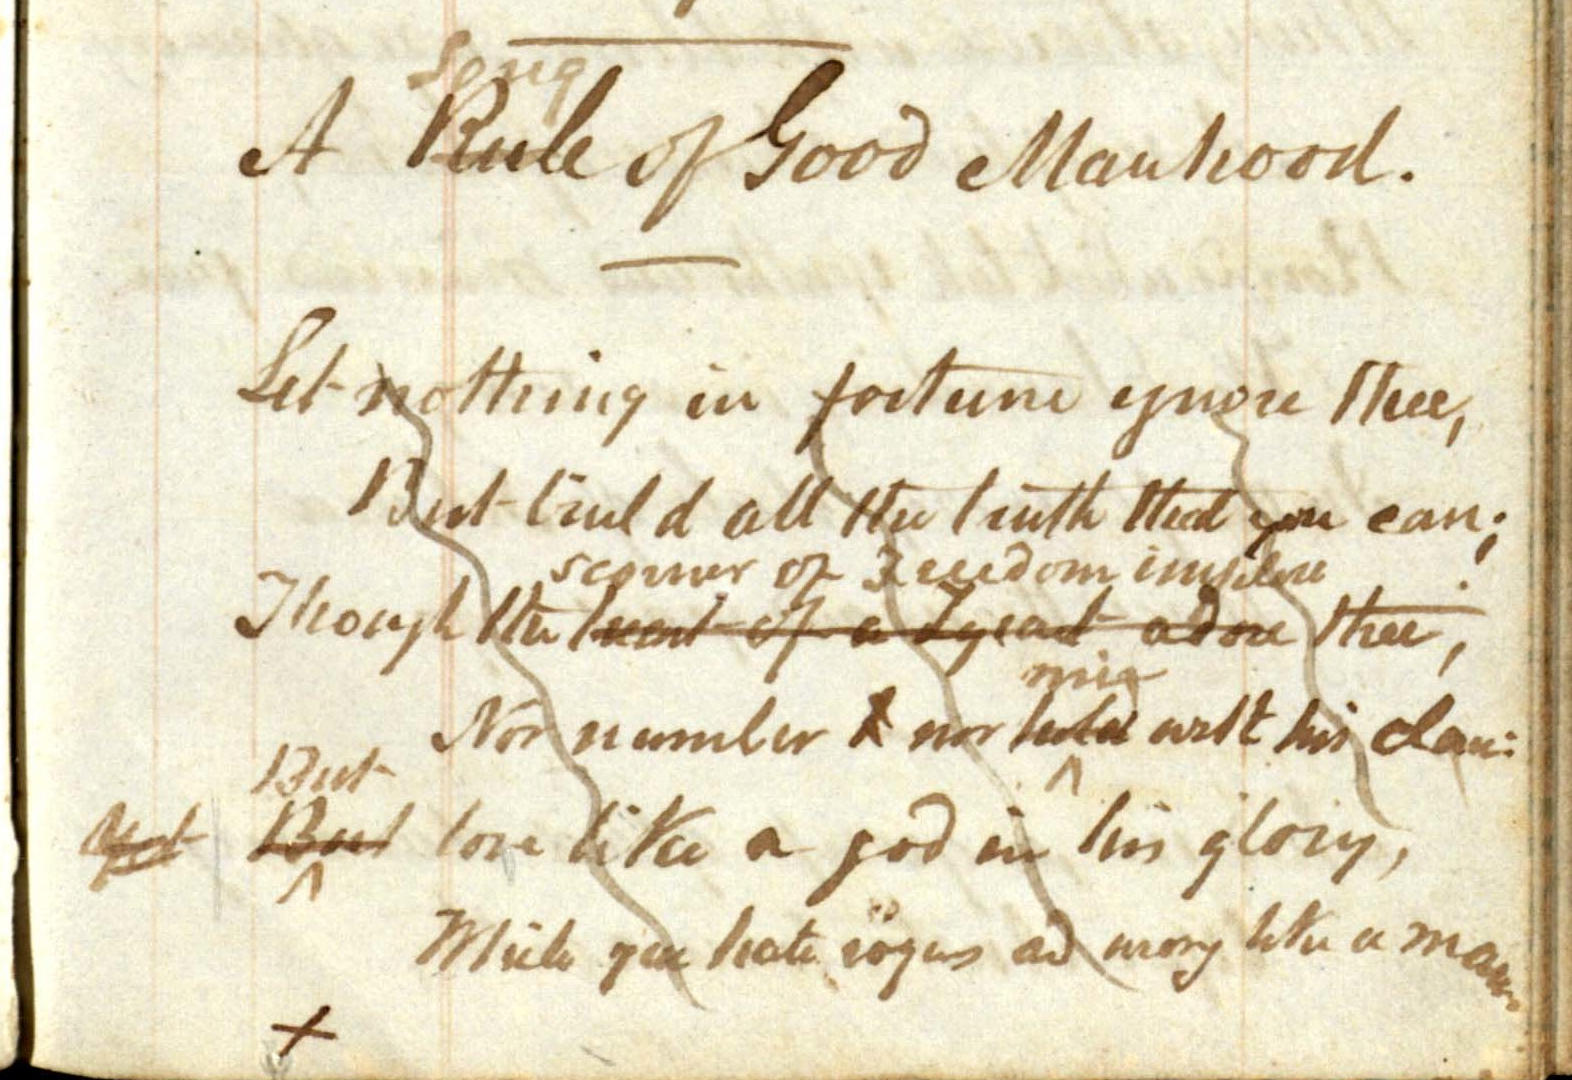 Song
A Rule of Good Manhood.
Let nothing in fortune ignore thee,
But build all the truth that you can;
scorner of Freedom implore
Though the heart of a Tyrant adore thee,
mix
Nor number nor with his clan:
But
Yet But love like a god in his glory,
While you hate rogues and wrong like a man.